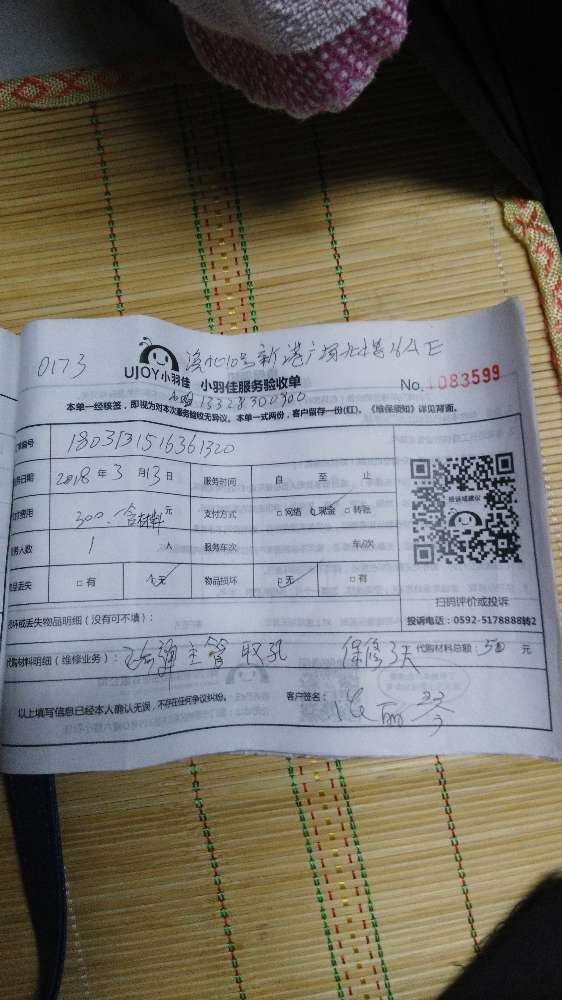 0173 号新港广场 64E
UJOY小羽佳 小羽佳服务验收单 No. 1083599
13328300900
本单一经核签,即视为对本次服务验收无异议。本单一式两份,客户留存一份(红)。《维保须知》详见背面。
编号 1803131516361320
务日期 2018年3月13日 服务时间 自 至 止
费用 300.含材料 元 支付方式 □网络 □现金 □转账
务人数 1 人 服务车次 车/次
投诉或建议
物品丢失 □有 □无 物品损坏 □无 □有
扫码评价或投诉
损坏或丢失物品明细(没有可不填): 投诉电话:0592-5178888转2
代购材料明细(维修业务): 疏通主管 取孔 保修3天 代购材料总额:50 元
以上填写信息已经本人确认无误,不存在任何争议纠纷。 客户签名: 丽琴